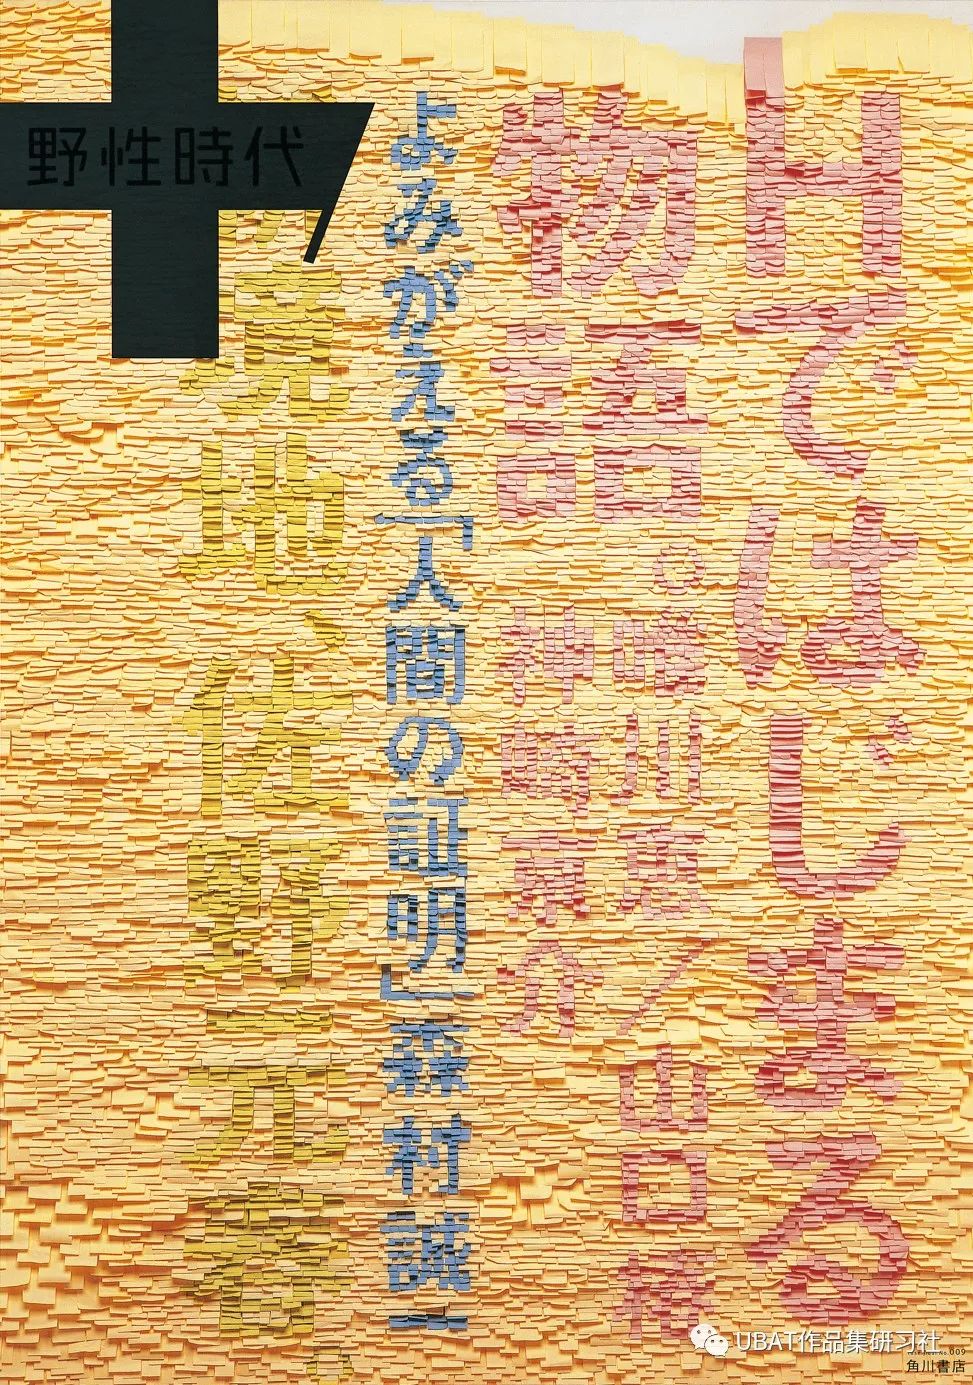 野性時代
Hではじまる
物語。
唯川恵/山口椿
神崎京介
よみがえる「人間の証明」森村誠一
荒地、佐野元春、
UBAT作品集研习社
No.009
角川書店